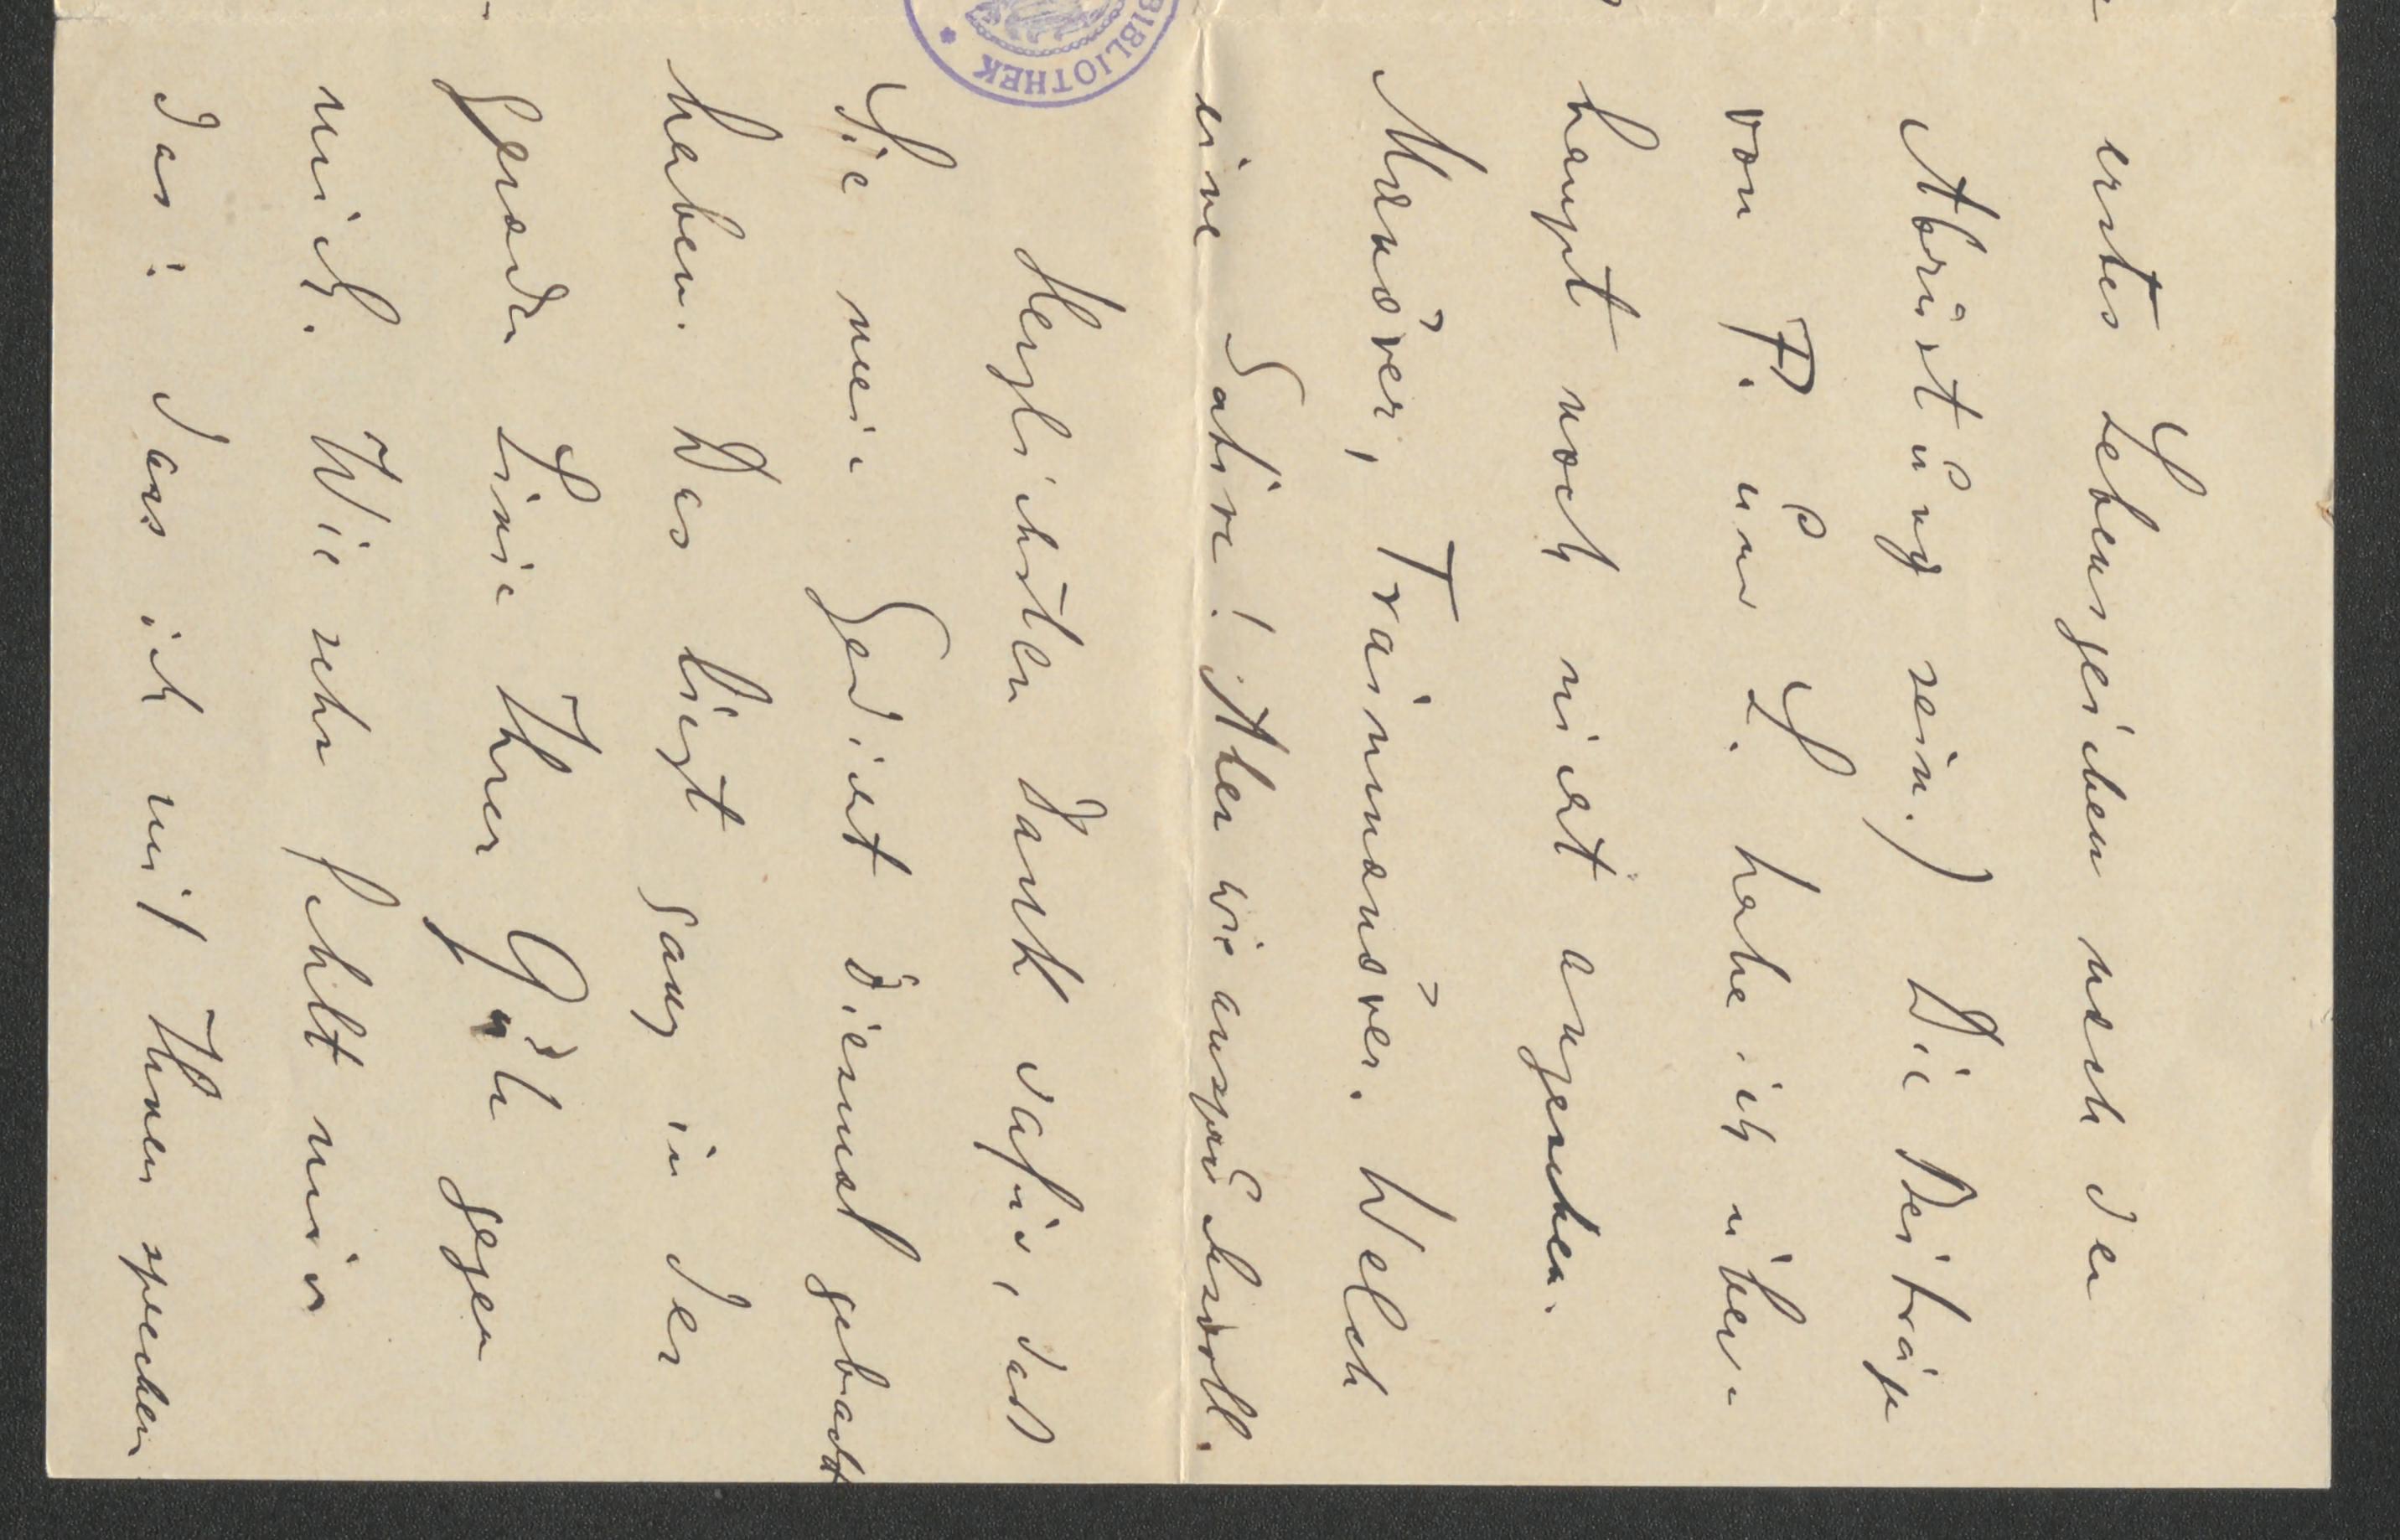 erstes Lebenszeichen nach der
Abrüstung sein.) Die Beiträge
von P. und L. habe ich über-
haupt noch nicht angesehen.
Manöver, Trainmanöver. Welch
eine Satire! Aber wie anspruchsvoll.
Herzlichsten Dank dafür, dass
Sie mein Gedicht diesmal gebracht
haben. Das liegt ganz in der
Linie Ihrer Güte gegen
mich. Wie sehr fehlt mir
das: dass ich mit Ihnen sprechen
BIBLIOTHEK